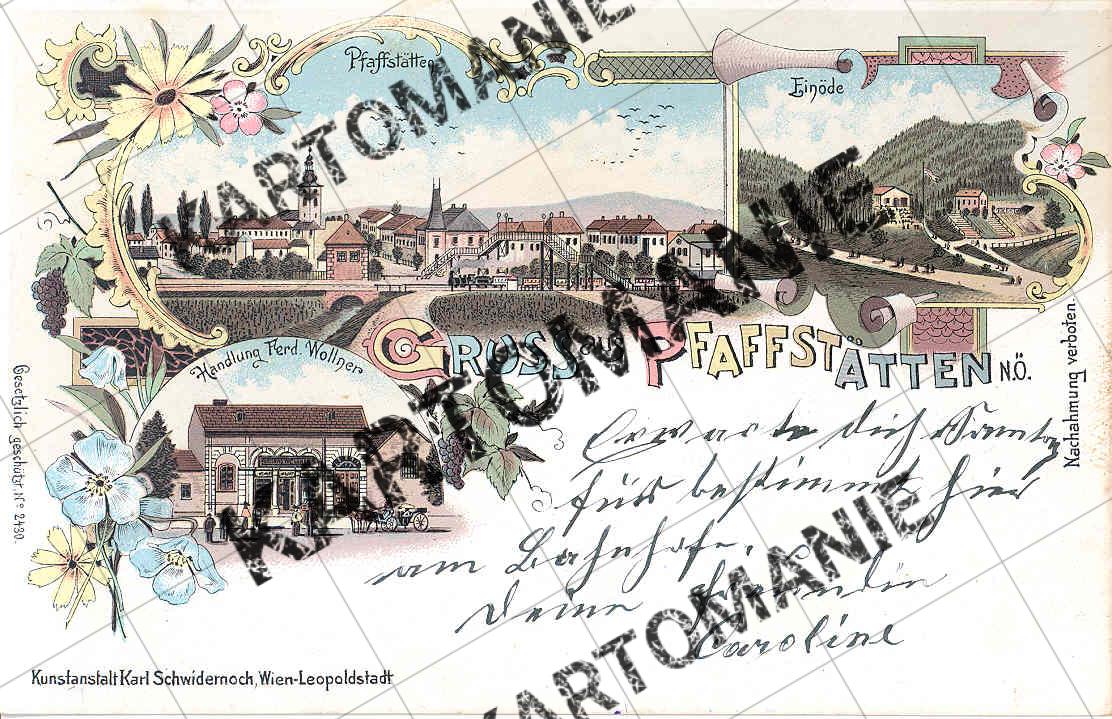 Pfaffstätten
Einöde
Handlung Ferd. Wollner
GRUSS aus PFAFFSTÄTTEN N.Ö.
Gesetzlich geschützt. No 2430.
Nachahmung verboten.
Erwarte dich Samstag
für bestimmt hier
am Bahnhofe.
Deine Freundin
Caroline
Kunstanstalt Karl Schwidernoch, Wien-Leopoldstadt
KARTOMANIE
KARTOMANIE
KARTOMANIE
KARTOMANIE
KARTOMANIE